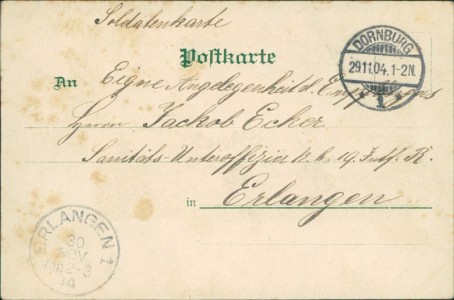 Soldatenkarte
Postkarte
DORNBURG
29.11.04.1-2N.
* 1 *
An Eigne Angelegenheit d. Empfängers
Herrn Jackob Ecker
Sanitäts-Unteroffizier k. b. 19. Inft. R.
in Erlangen
ERLANGEN 1
30
NOV
2-3
04